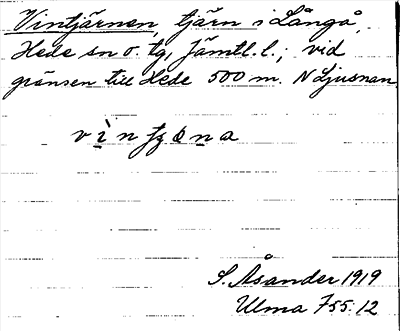 Vintjärnen, tjärn i Långå,
Hede sn o. tg, Jämtl. l.; vid
gränsen till Hede 500 m. N Ljusnan.
S. Åsander 1919
Ulma 755:12